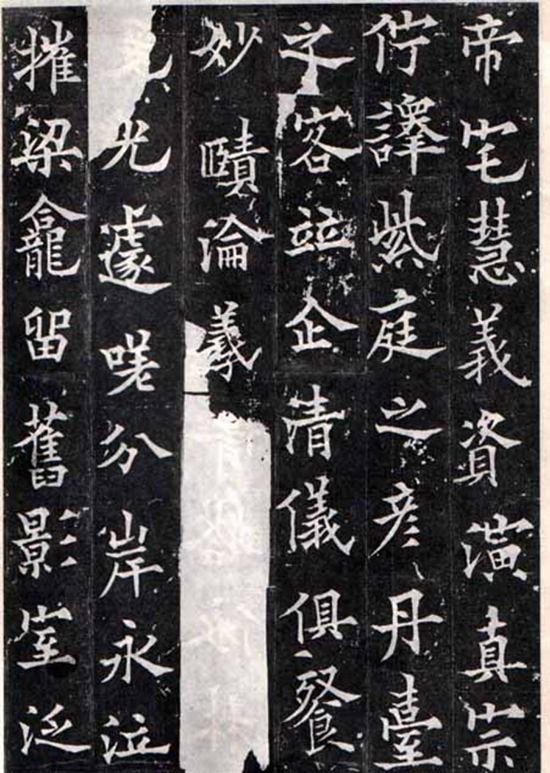 帝宅慧義資演真宗
佇譯紫庭之彥丹臺
之客竝企清儀俱餐
妙賾淪義
光遽嗟分岸永泣
摧梁龕留舊影室泛